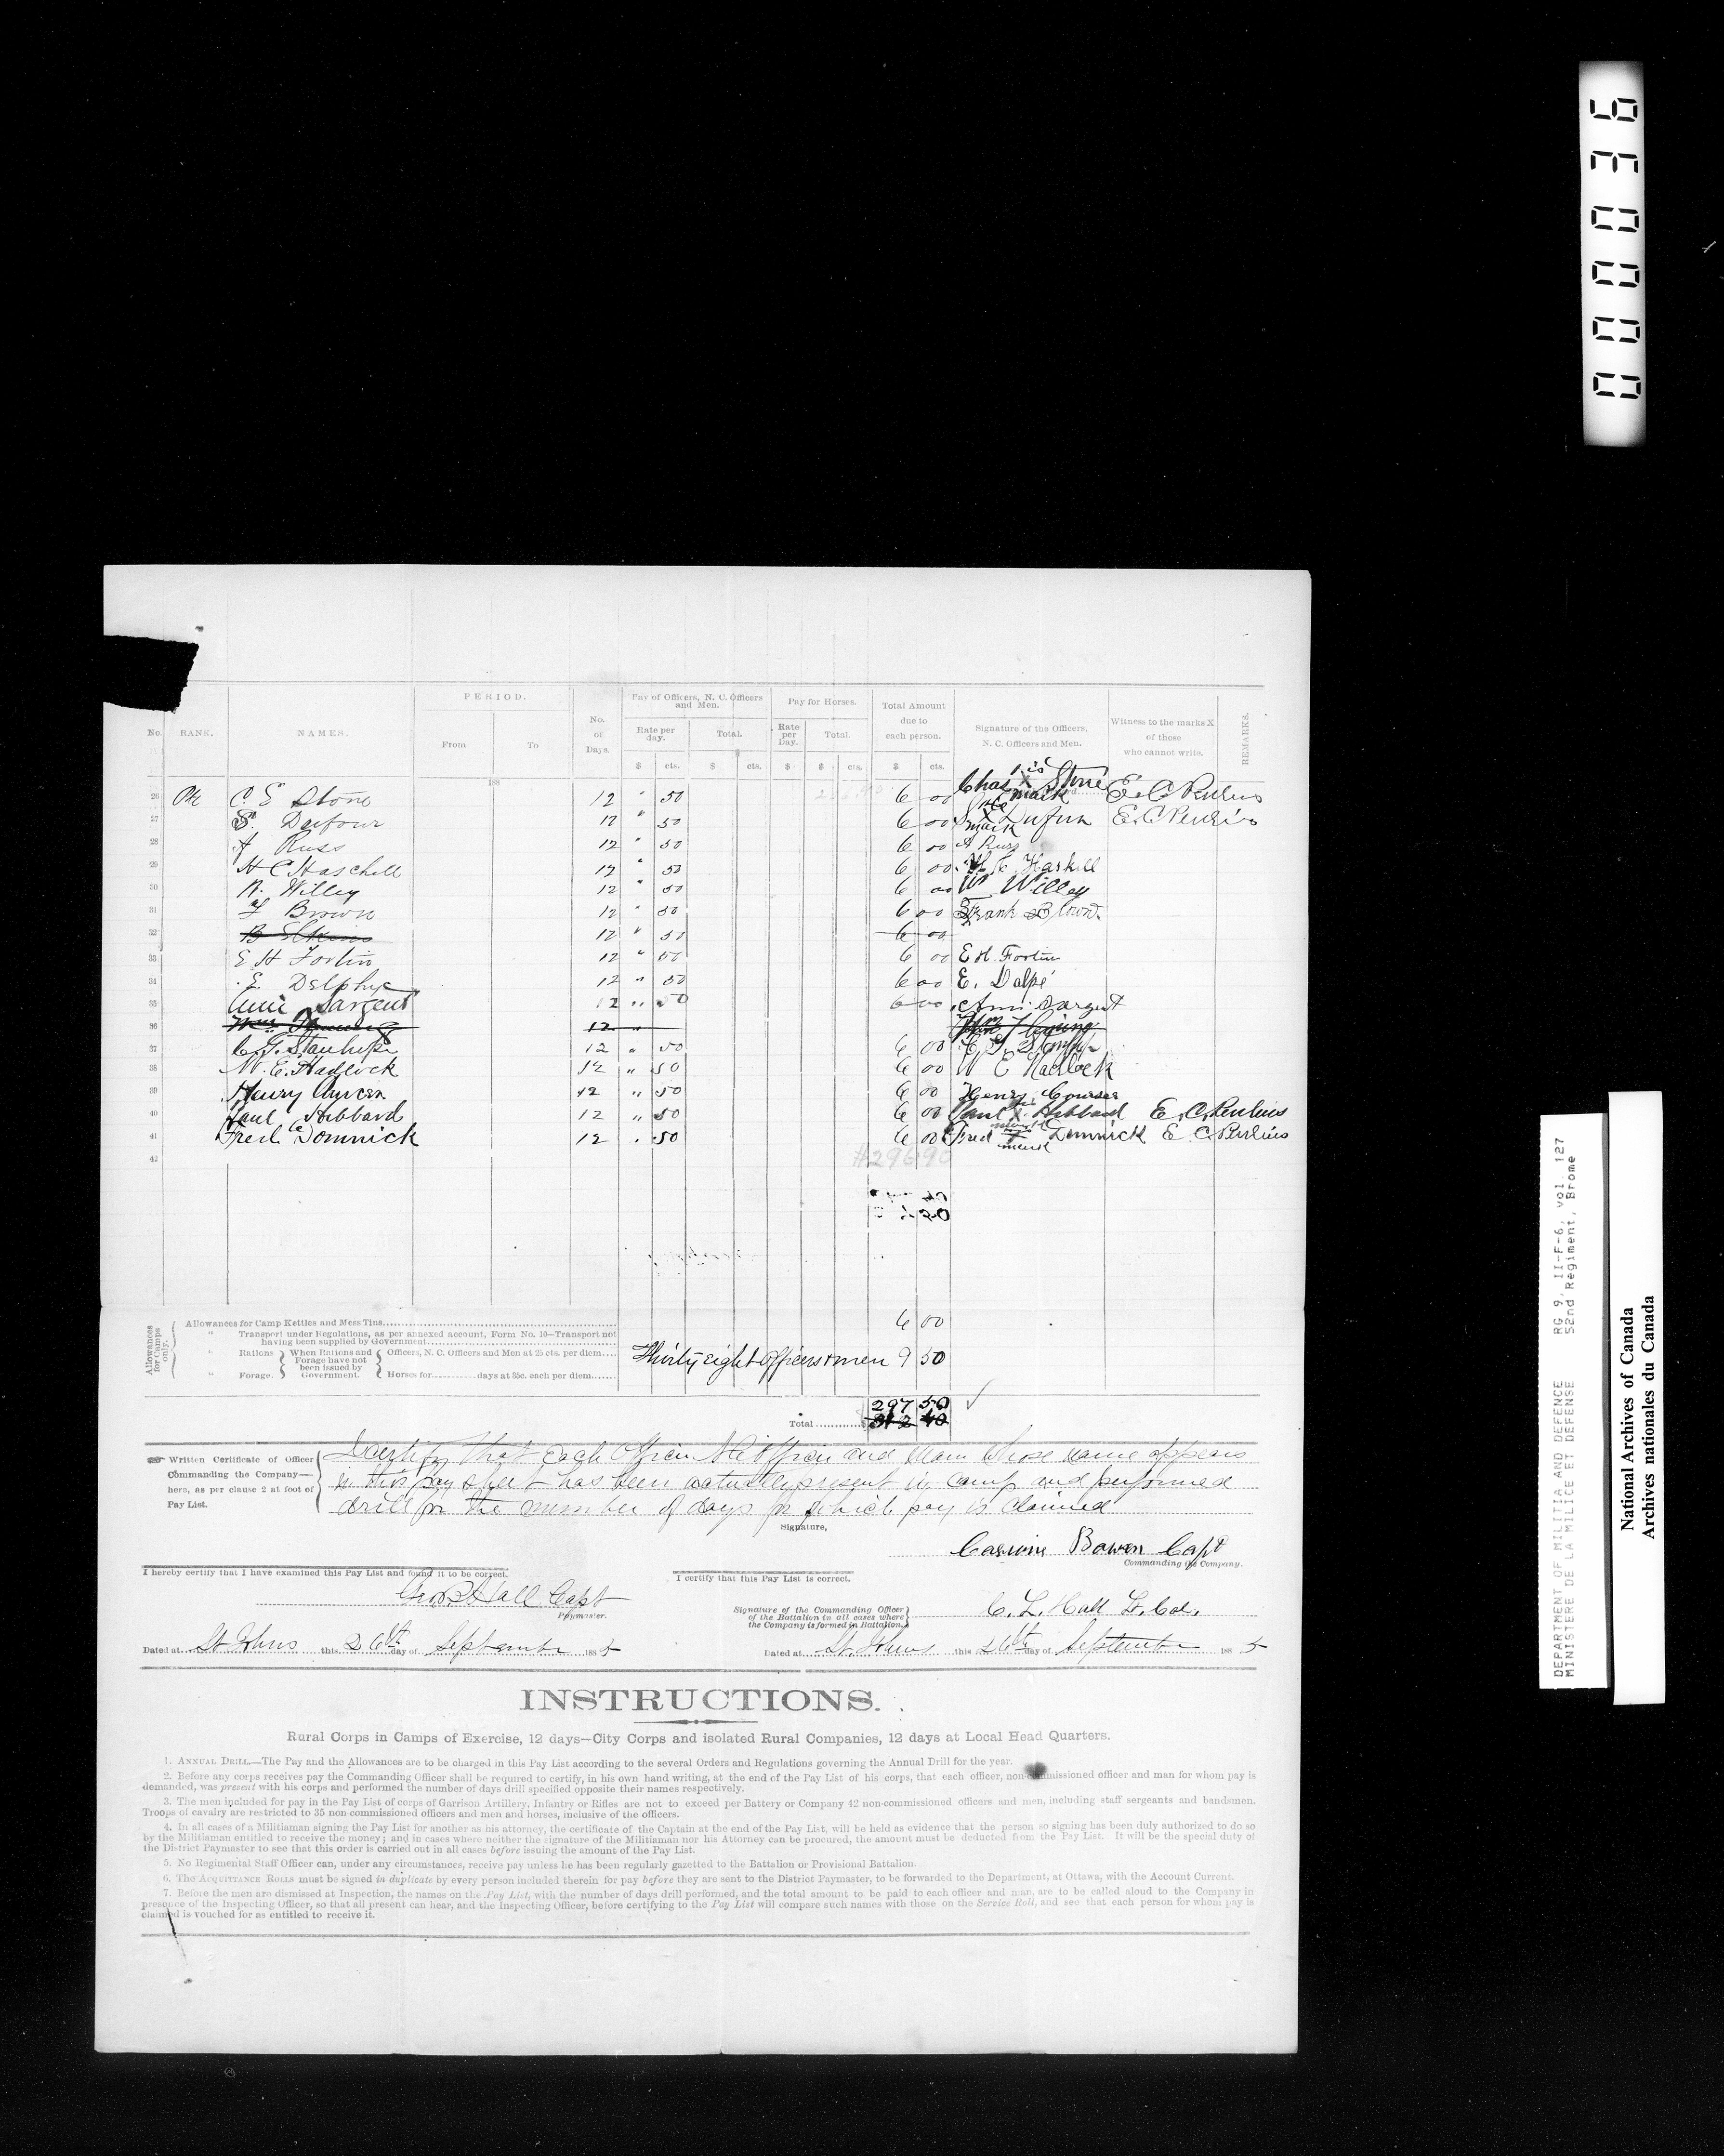 No. RANK. NAMES. PERIOD. From To No. of Days. Pay of Officers, N. C. Officers and Men. Rate per day. Total. $ cts. $ cts. Pay for Horses. Rate per Day. Total. $ $ cts. Total Amount due to each person. $ cts. Signature of the Officers, N. C. Officers and Men. Witness to the marks X of those who cannot write. REMARKS.
188
26 Pte C. E Stone 12 " 50 6 00 Chas his X mark Stone E. C Perkins
27 S. Dufour 12 " 50 6 00 S his X mark Dufur E. C Perkins
28 A Russ 12 " 50 6 00 A Russ
29 H C Haschell 12 " 50 6 00 H. C Haskell
30 W. Willey 12 " 50 6 00 W Willey
31 F Brown 12 " 50 6 00 Frank Brown
32 B Elkins 12 " 50 6 00
33 E H Fortin 12 " 50 6 00 E H. Fortin
34 E. Delphe 12 " 50 6 00 E. Dalpé
35 Amie Sargent 12 " 50 6 00 Ami Sargent
36 Wm Fleming 12 " Wm Fleming
37 C. G. Stanhope 12 " 50 6 00 C G Stanhope
38 W. E. Hadlock 12 " 50 6 00 W E Hadlock
39 Henry 12 " 50 6 00 Henry
40 Paul Hibbard 12 " 50 6 00 Paul his X mark Hibbard E. C. Perkins
41 Fred Domnick 12 " 50 6 00 Fred X mark Domnick E C. Perkins
42
$296.90
Allowances for Camps only.
Allowances for Camp Kettles and Mess Tins 6 00
" Transport under Regulations, as per annexed account, Form No. 10—Transport not having been supplied by Government
" Rations When Rations and Forage have not been issued by Government. Officers, N. C. Officers and Men at 25 cts. per diem Thirty eight Officers & men 9 50
" Forage. Horses for days at 35c. each per diem
297 50
Total $ 312 40
Written Certificate of Officer Commanding the Company—here, as per clause 2 at foot of Pay List.
I certify that each Officer N C Officer and Man whose name appears
in this pay sheet has been actually present in camp and performed
drill for the number of days for which pay is claimed
Signature,
Bowen Capt
Commanding the Company.
I hereby certify that I have examined this Pay List and found it to be correct.
Geo B Hall Capt
Paymaster.
I certify that this Pay List is correct.
Signature of the Commanding Officer of the Battalion in all cases where the Company is formed in Battalion.
C. L. Hall Lt. Col.
Dated at St Johns this 26th day of September 1885
Dated at St. Johns this 26th day of September 1885
INSTRUCTIONS.
Rural Corps in Camps of Exercise, 12 days—City Corps and isolated Rural Companies, 12 days at Local Head Quarters.
1. ANNUAL DRILL.—The Pay and the Allowances are to be charged in this Pay List according to the several Orders and Regulations governing the Annual Drill for the year.
2. Before any corps receives pay the Commanding Officer shall be required to certify, in his own hand writing, at the end of the Pay List of his corps, that each officer, non-commissioned officer and man for whom pay is
demanded, was present with his corps and performed the number of days drill specified opposite their names respectively.
3. The men included for pay in the Pay List of corps of Garrison Artillery, Infantry or Rifles are not to exceed per Battery or Company 42 non-commissioned officers and men, including staff sergeants and bandsmen.
Troops of cavalry are restricted to 35 non-commissioned officers and men and horses, inclusive of the officers.
4. In all cases of a Militiaman signing the Pay List for another as his attorney, the certificate of the Captain at the end of the Pay List, will be held as evidence that the person so signing has been duly authorized to do so
by the Militiaman entitled to receive the money; and in cases where neither the signature of the Militiaman nor his Attorney can be procured, the amount must be deducted from the Pay List. It will be the special duty of
the District Paymaster to see that this order is carried out in all cases before issuing the amount of the Pay List.
5. No Regimental Staff Officer can, under any circumstances, receive pay unless he has been regularly gazetted to the Battalion or Provisional Battalion.
6. The ACQUITTANCE ROLLS must be signed in duplicate by every person included therein for pay before they are sent to the District Paymaster, to be forwarded to the Department, at Ottawa, with the Account Current.
7. Before the men are dismissed at Inspection, the names on the Pay List, with the number of days drill performed, and the total amount to be paid to each officer and man, are to be called aloud to the Company in
presence of the Inspecting Officer, so that all present can hear, and the Inspecting Officer, before certifying to the Pay List will compare such names with those on the Service Roll, and see that each person for whom pay is
claimed is vouched for as entitled to receive it.
000036
DEPARTMENT OF MILITIA AND DEFENCE RG 9, II-F-6, vol. 127
MINISTERE DE LA MILICE ET DEFENSE 52nd Regiment, Brome
National Archives of Canada
Archives nationales du Canada